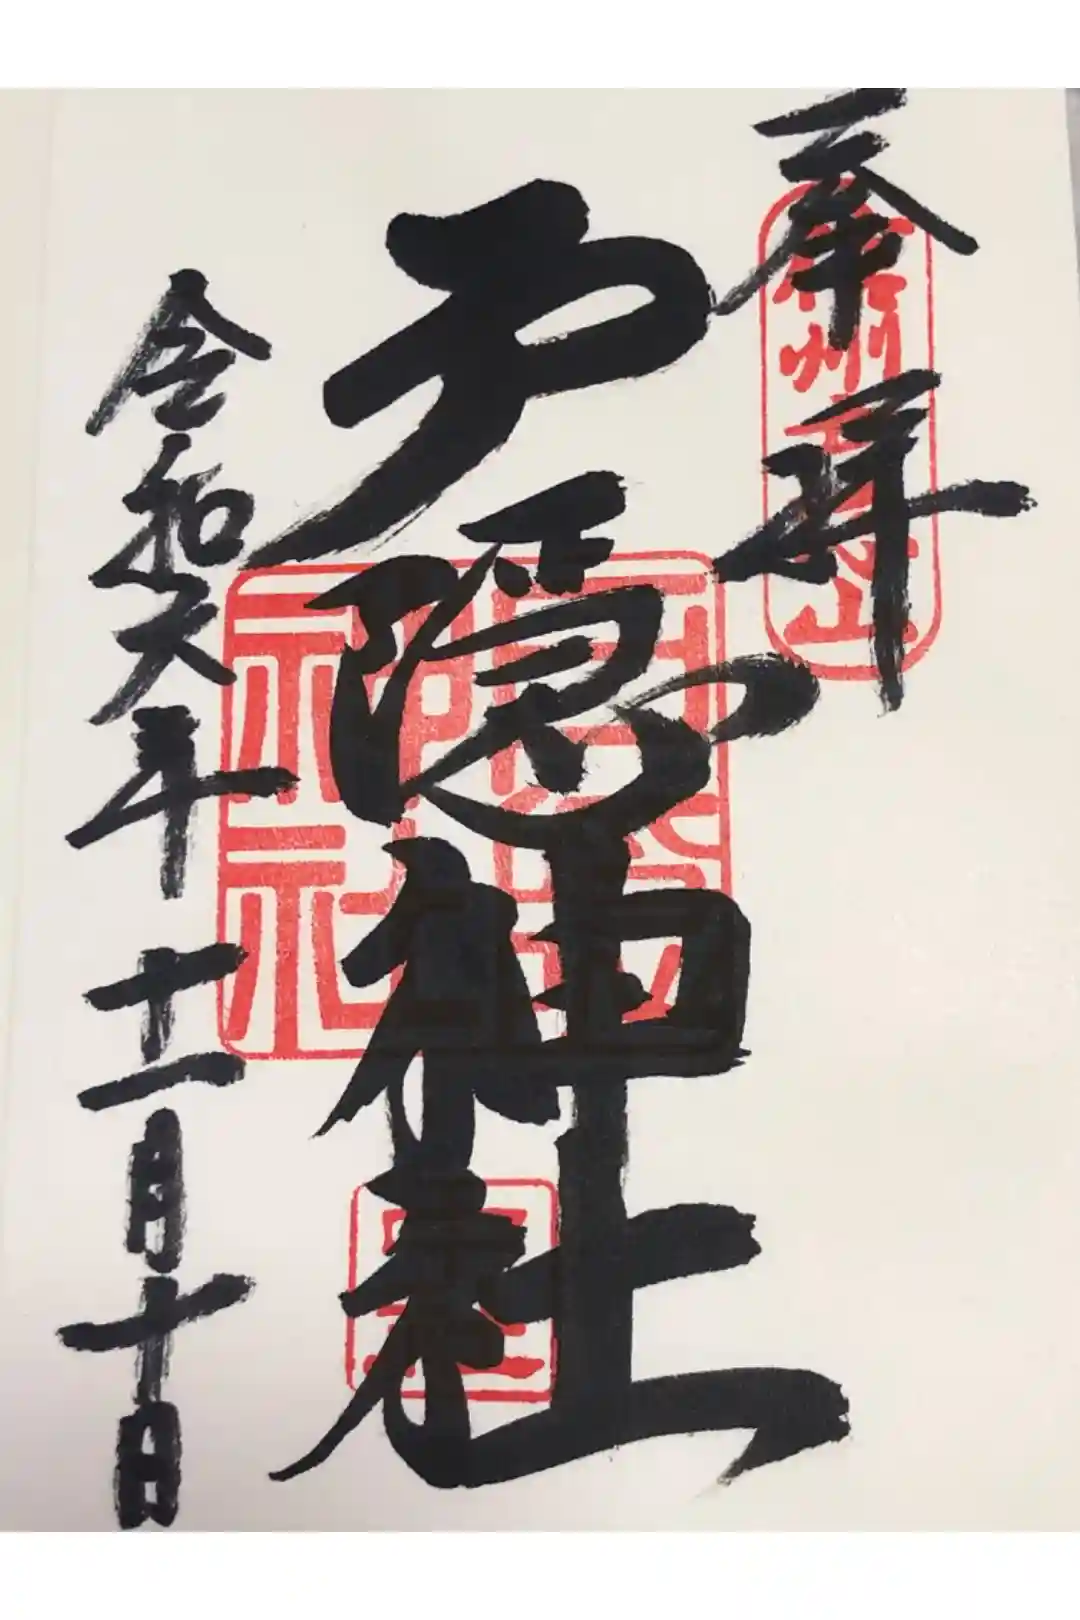 奉拝
信州戸隠山
戸隠神社
戸隠神社
令和六年十一月十日